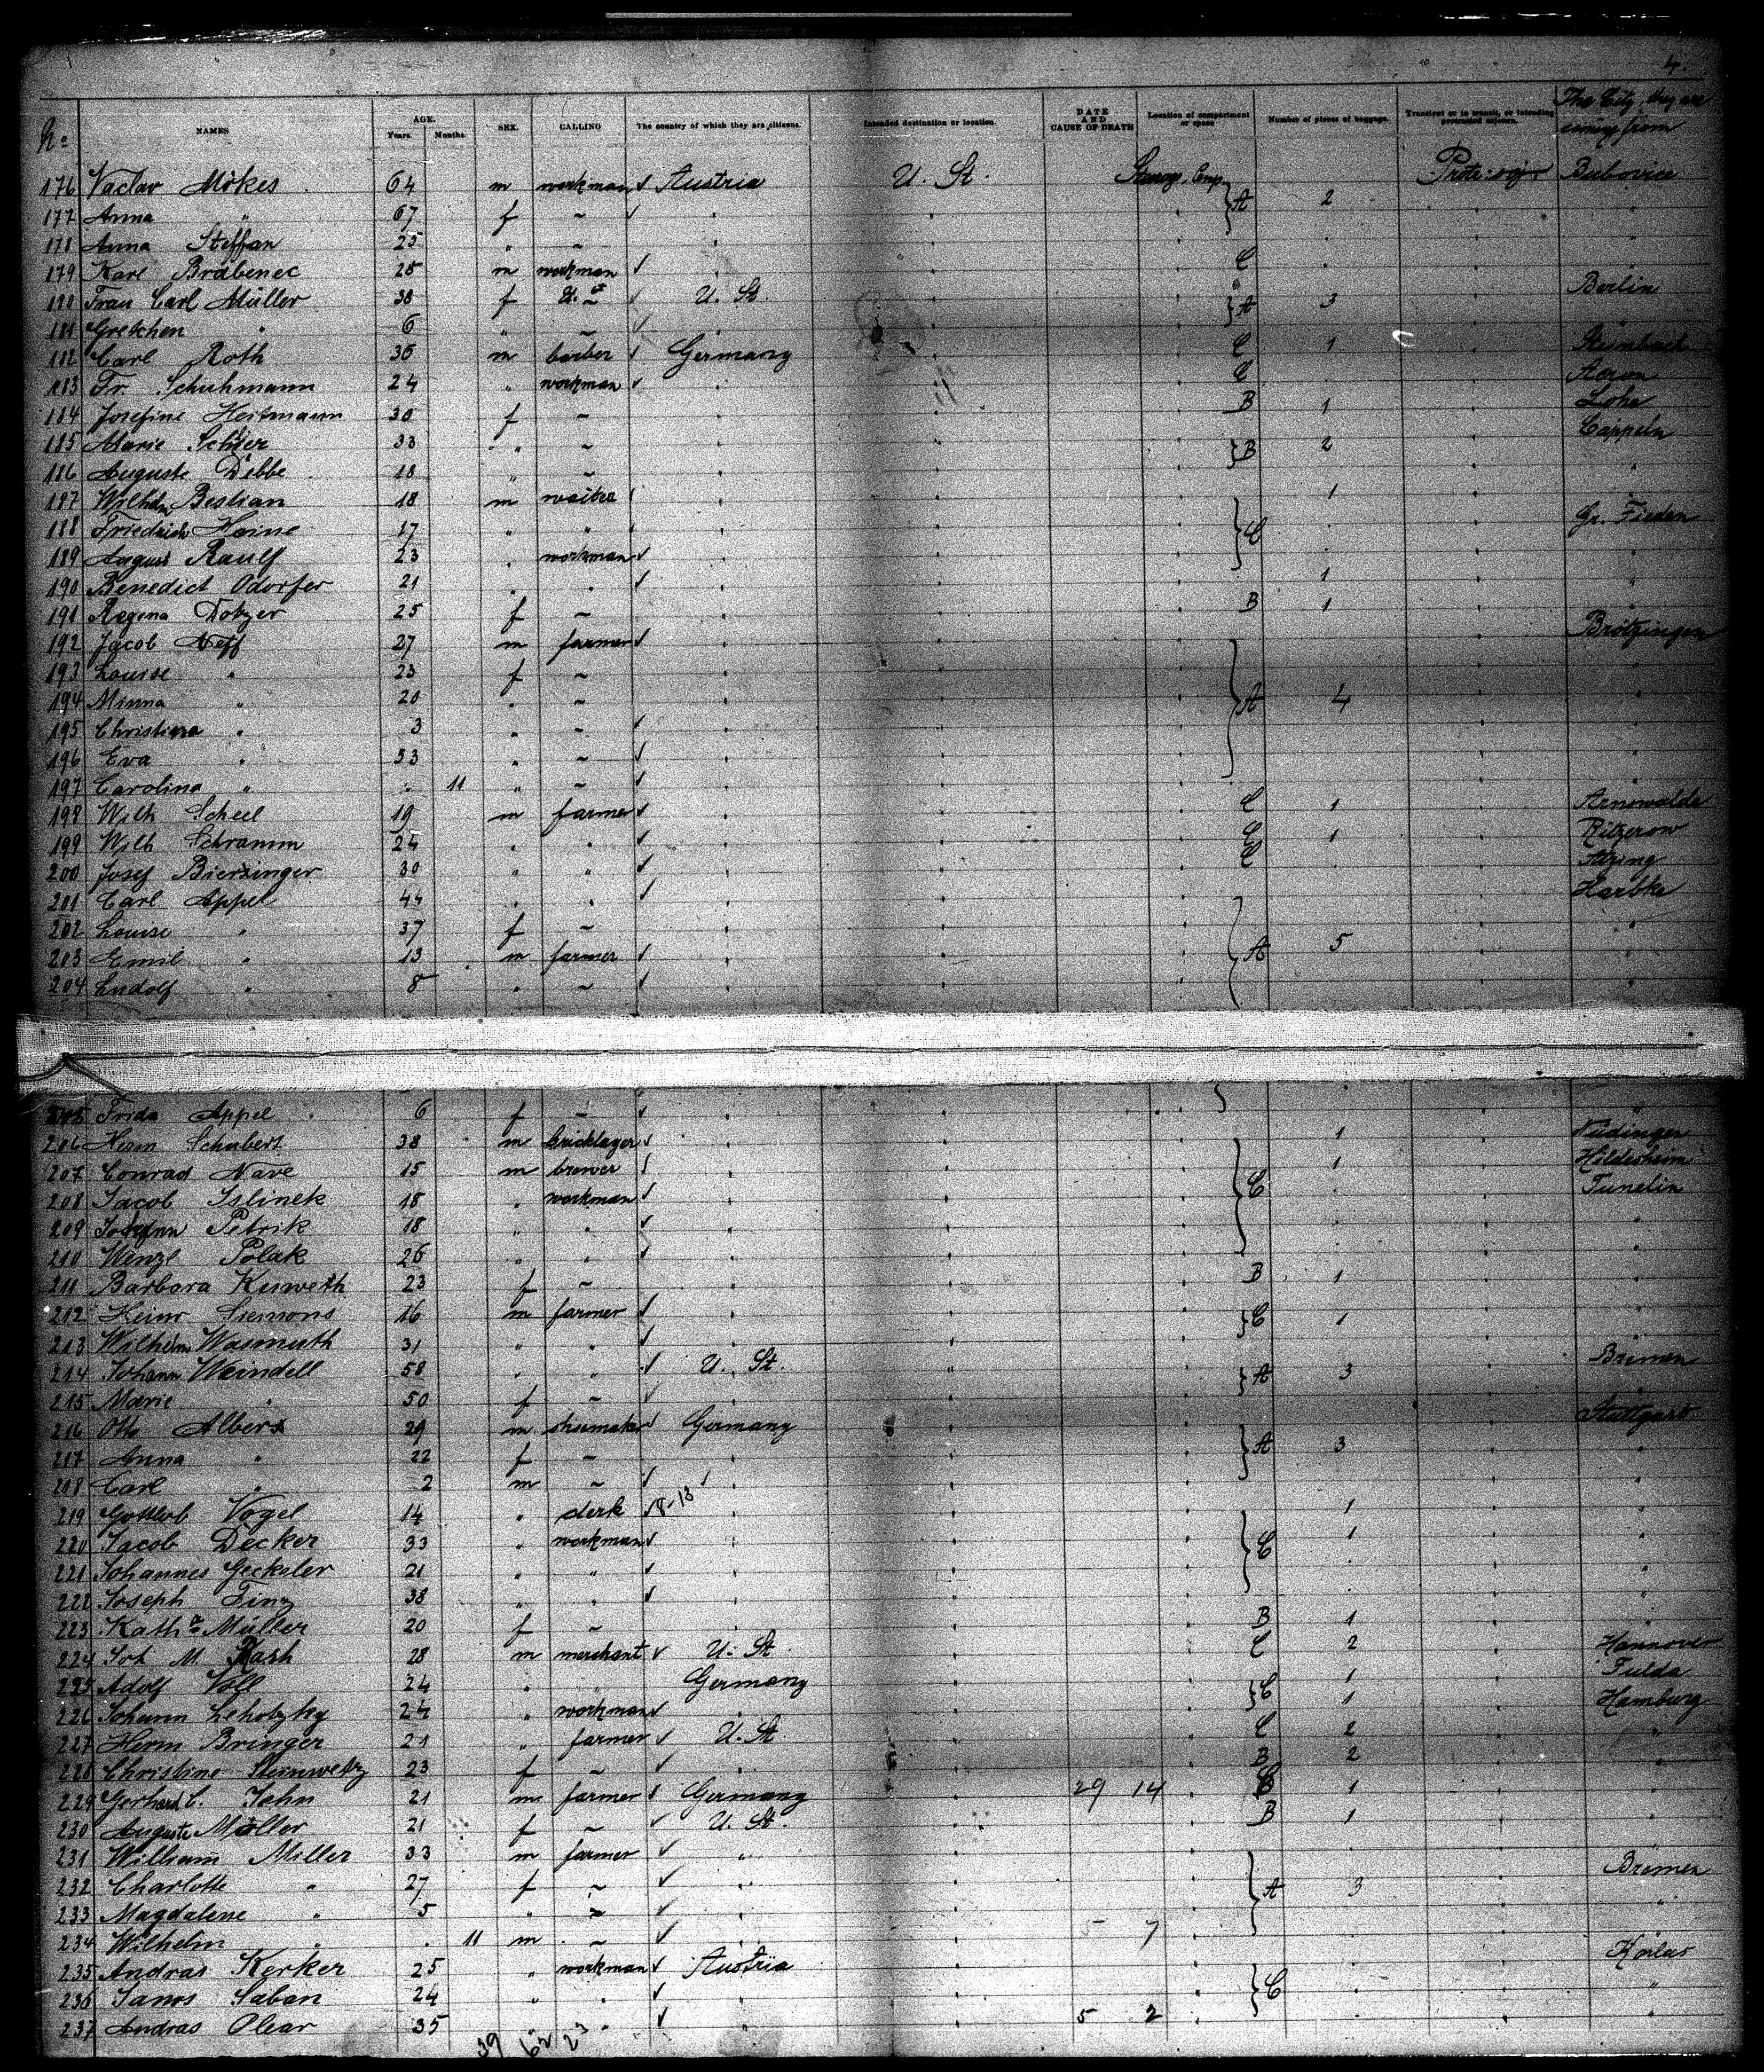 4.
No NAMES AGE. Years. Months. SEX. CALLING The country of which they are citizens. Intended destination or location. DATE AND CAUSE OF DEATH Location of compartment or space Number of pieces of baggage. Transient or in transit, or intending protracted sojourn. The City, they are coming from
176 Vaclav Mokes 64 m workman Austria U. St. Steerage Comp. A 2 Protr. soj. Bubovice
177 Anna " 67 f -
178 Anna Steffan 25 " -
179 Karl Brabenec 28 m workman C
180 Frau Carl Müller 38 f - U. St. A 3 Berlin
181 Gretchen " 6 " -
182 Carl Roth 36 m barber Germany C 1 Steinbach
183 Fr. Schuhmann 24 " workman C
184 Josefine Heitmann 30 f - B 1 Lohe
185 Marie 33 " - B 2 Cappeln
186 Auguste Debbe 18 " -
187 Wilhelm Bestian 18 m waiter C 1
188 Friedrich Heine 17 " " Gr. Fieden
189 August Raulf 23 " workman
190 Benedict Odorfer 21 " " 1
191 Regena Dotzer 25 f - B 1
192 Jacob Neff 27 m farmer A 4 Brötzingen
193 Louise " 23 f -
194 Minna " 20 " -
195 Christiana " 3 " -
196 Eva " 53 " -
197 Carolina " " 11 " -
198 Wilh Scheel 19 m farmer C 1 Arnswalde
199 Wilh Schramm 24 " " C 1 Ritzerow
200 Josef Bierzinger 30 " " C Atzing
201 Carl Appel 44 " " A 5 Harbke
202 Louise " 37 f -
203 Emil " 13 m farmer
204 Ludolf " 8 " -
205 Frida Appel 6 f -
206 Herm Schubert 38 m bricklager C 1 Nüdingen
207 Conrad Nave 15 m brewer 1 Hildesheim
208 Jacob Islinek 18 " workman Tunelin
209 Johann Petrik 18 " "
210 Wenzl Polak 26 " "
211 Barbara 23 f - B 1
212 Heinr Siemons 16 m farmer C 1
213 Wilhelm Wasmuth 31 " "
214 Johann Weindell 58 " " U. St. A 3 Bremen
215 Marie " 50 f -
216 Otto Albers 29 m shumaker Germany A 3 Stuttgart
217 Anna " 22 f -
218 Carl " 2 m -
219 Gottlob Vogel 14 " clerk 8-13 C 1
220 Jacob Decker 33 " workman 1
221 Johannes Geckeler 21 " "
222 Joseph Finz 38 " "
223 Kath. Müller 20 f - B 1
224 Joh M. Rash 28 m merchant U. St C 2 Hannover
225 Adolf Voll 24 " " Germany C 1 Fulda
226 Johann Lehotzky 24 " workman 1 Hamburg
227 Herm Bringer 21 " farmer U. St C 2 "
228 Christine Steinwetz 23 f - B 2
229 Gerhard C. Jahn 21 m farmer Germany 29 14 C 1
230 Auguste Möller 21 f - U. St. B 1
231 William Miller 33 m farmer " A 3 Bremen
232 Charlotte " 27 f - "
233 Magdalene " 5 " - "
234 Wilhelm " " 11 m - " 5 7
235 Andras Kerker 25 " workman Austria C
236 Janos Saban 24 " " "
237 Andras Olear 35 " " " 5 2
39 62 23